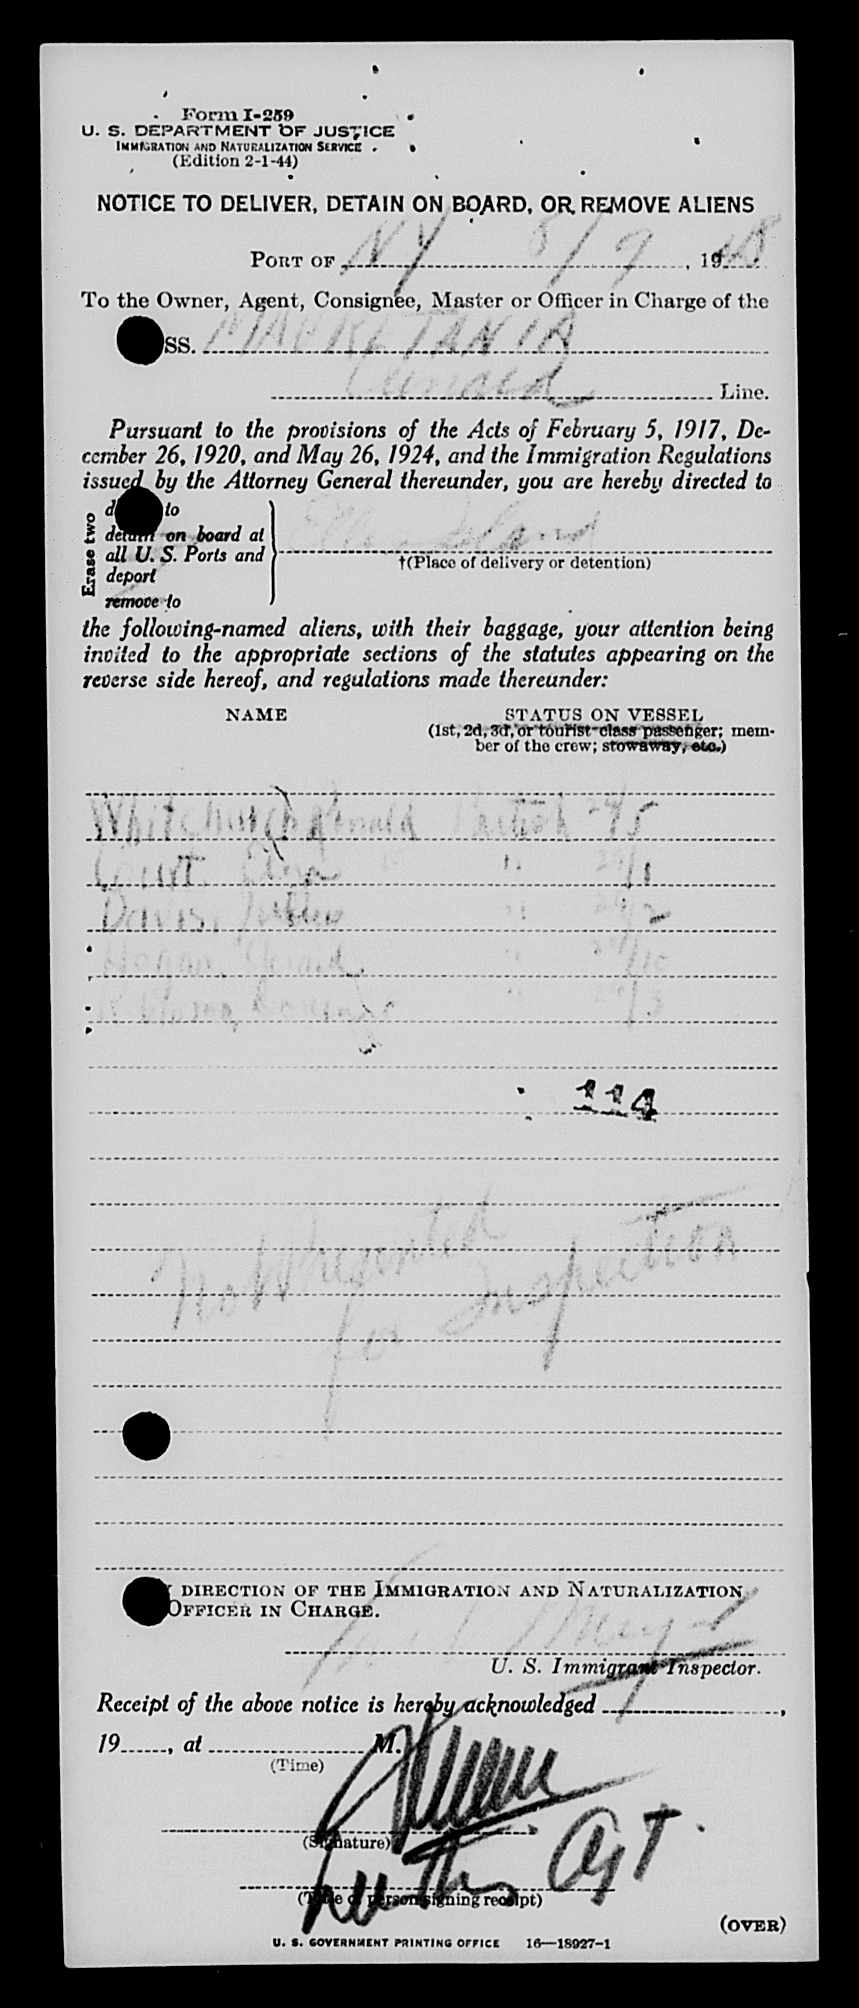 Form I-259
U. S. DEPARTMENT OF JUSTICE
IMMIGRATION AND NATURALIZATION SERVICE
(Edition 2-1-44)
NOTICE TO DELIVER, DETAIN ON BOARD, OR REMOVE ALIENS
PORT OF NY 8/9, 1948
To the Owner, Agent, Consignee, Master or Officer in Charge of the
SS. MAURETANIA
Cunard Line.
Pursuant to the provisions of the Acts of February 5, 1917, De-
cember 26, 1920, and May 26, 1924, and the Immigration Regulations
issued by the Attorney General thereunder, you are hereby directed to
Erase two
to
detain on board at
all U. S. Ports and
deport
remove to
†(Place of delivery or detention)
the following-named aliens, with their baggage, your attention being
invited to the appropriate sections of the statutes appearing on the
reverse side hereof, and regulations made thereunder:
NAME
STATUS ON VESSEL
(1st, 2d, 3d, or tourist-class passenger; mem-
ber of the crew; stowaway, etc.)
Whitchurch Ronald British 24/5
Court, " 24/1
Davis, " 24/2
Hogan, Gerard " 24/10
" 24/3
114
Not presented
for Inspection
DIRECTION OF THE IMMIGRATION AND NATURALIZATION
OFFICER IN CHARGE.
U. S. Immigrant Inspector.
Receipt of the above notice is hereby acknowledged ,
19, at M.
(Time)
(Signature)
Agt.
(Title of person signing receipt)
(OVER)
U. S. GOVERNMENT PRINTING OFFICE 16—18927-1